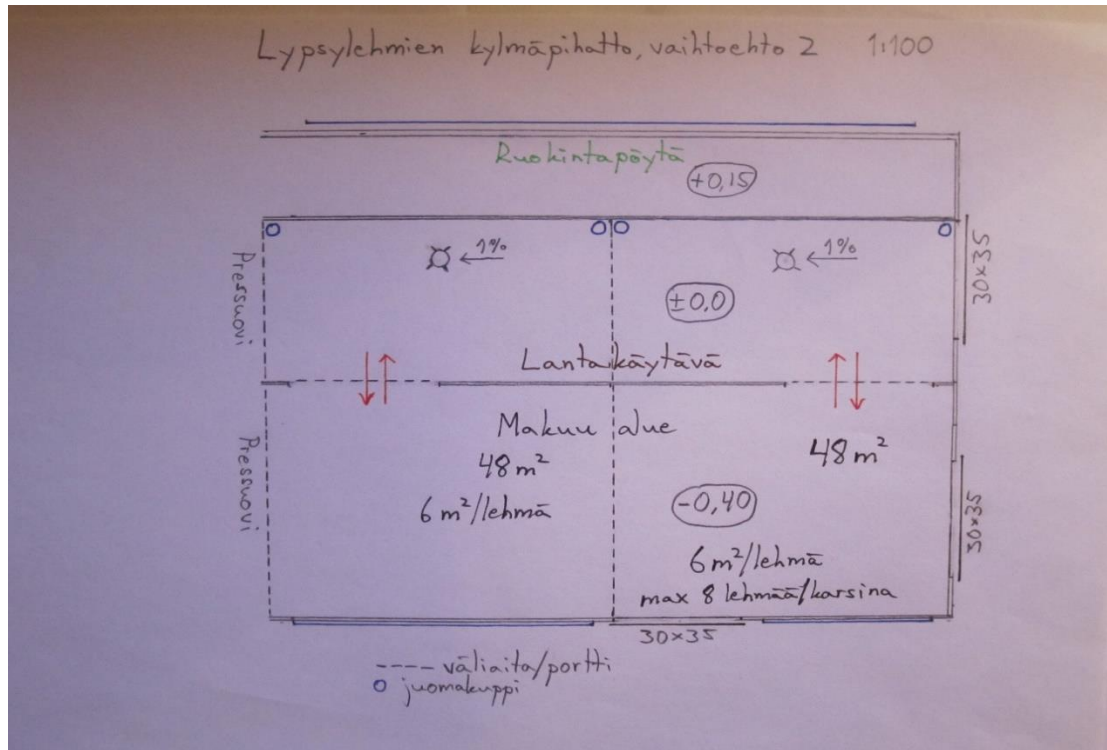 Lypsylehmien kylmäpihatto, vaihtoehto 2 1:100
Ruokintapöytä
+0,15
1%
1%
Pressuovi
30x35
±0,0
Lantakäytävä
Makuu alue
48 m²
48 m²
Pressuovi
6 m²/lehmä
-0,40
30x35
6 m²/lehmä
max 8 lehmää/karsina
30x35
---- väliaita/portti
o juomakuppi